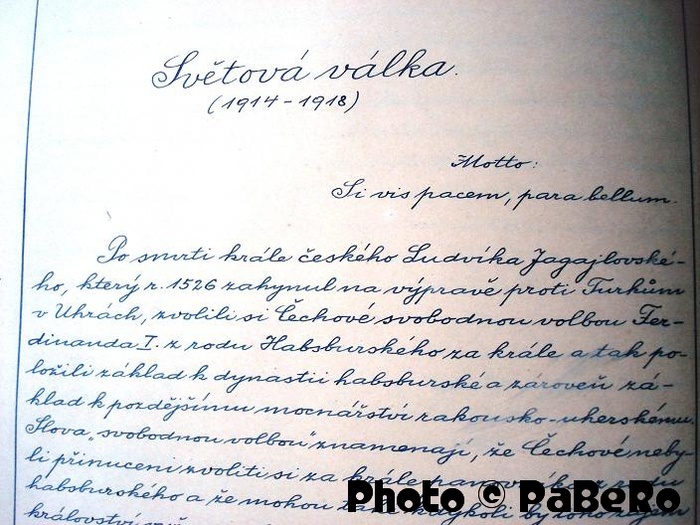 Světová válka.
(1914-1918)
Motto:
Si vis pacem, para bellum.
Po smrti krále českého Ludvíka Jagajlovské-
ho, který r. 1526 zahynul na výpravě proti Turkům
v Uhrách, zvolili si Čechové svobodnou volbou Fer-
dinanda I. z rodu Habsburského za krále a tak po-
ložili základ k dynastii habsburské a zároveň zá-
klad k pozdějšímu mocnářství rakousko-uherskému.
Slova "svobodnou volbou" znamenají, že Čechové neby-
li přinuceni zvoliti si za krále panovníka z rodu
habsburského a že mohou
království
Photo © PaBeRo